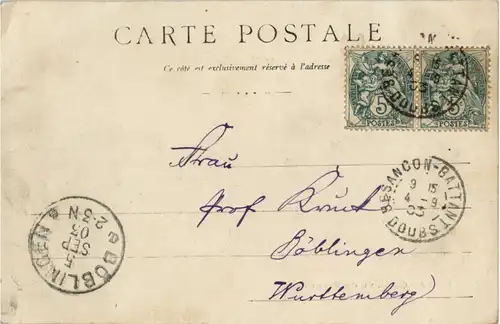 CARTE POSTALE
Ce côté est exclusivement réservé à l'adresse
5 POSTES 5 POSTES
DOUBS
Frau
Prof Krut
Böblingen
Württemberg)
BESANCON-BATTANT
9 15
4 - 9
03
DOUBS
BÖBLINGEN
5
SEP
03
2-3N